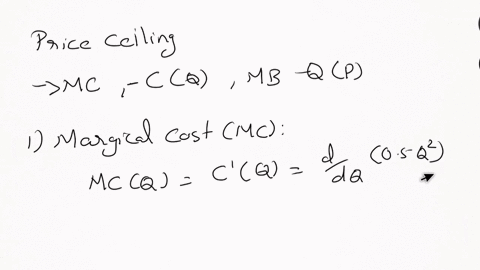 Price Ceiling
→MC, -C(Q), MB -Q(P)
1) Margical Cost (MC):
MC(Q) = C'(Q) = d/dQ (0.5Q²)